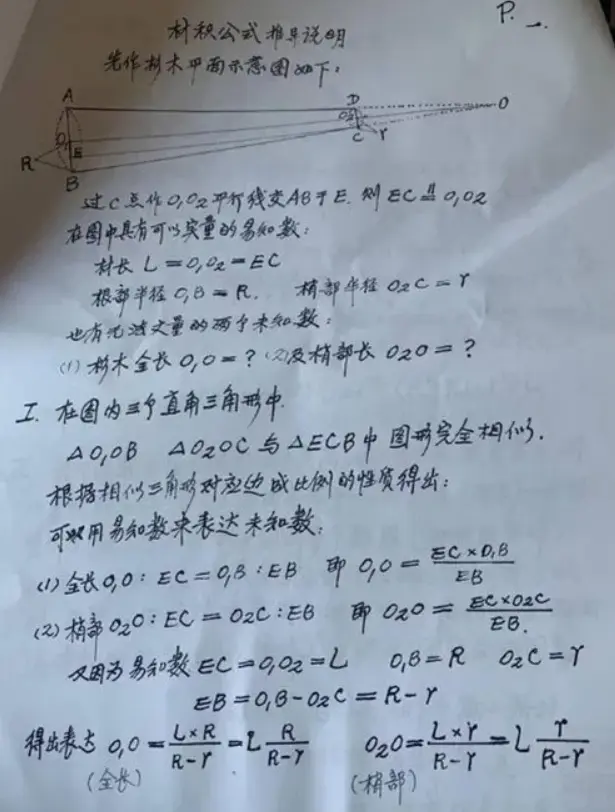 P. 一.
材积公式推导说明
先作杉木平面示意图如下:
A D O
O₂
O₁ E C r
R B
过C点作O₁O₂平行线交AB于E. 则EC⫫O₁O₂
在图中具有可以实量的易知数:
材长 L=O₁O₂=EC
根部半径 O₁B=R. 梢部半径 O₂C=r
也有无法丈量的两个未知数:
(1) 杉木全长 O₁O=? (2)及梢部长 O₂O=?
I. 在图内三个直角三角形中.
△O₁OB △O₂OC 与 △ECB中 图形完全相似.
根据相似三角形对应边成比例的性质得出:
可以用易知数来表达未知数:
(1) 全长 O₁O : EC = O₁B : EB 即 O₁O = EC×O₁B / EB
(2) 梢部 O₂O : EC = O₂C : EB 即 O₂O = EC×O₂C / EB.
又因为易知数 EC=O₁O₂=L O₁B=R O₂C=r
EB=O₁B-O₂C=R-r
得出表达 O₁O = L×R / R-r = L R / R-r O₂O = L×r / R-r = L r / R-r
(全长) (梢部)